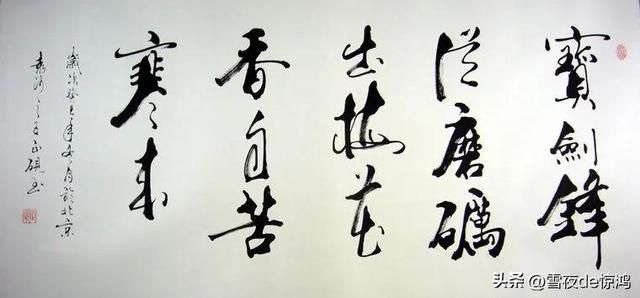 寶劍鋒
從磨礪
出梅花
香自苦
寒來
歲次癸巳年月於北京
正硯書
头条 @雪夜de惊鸿